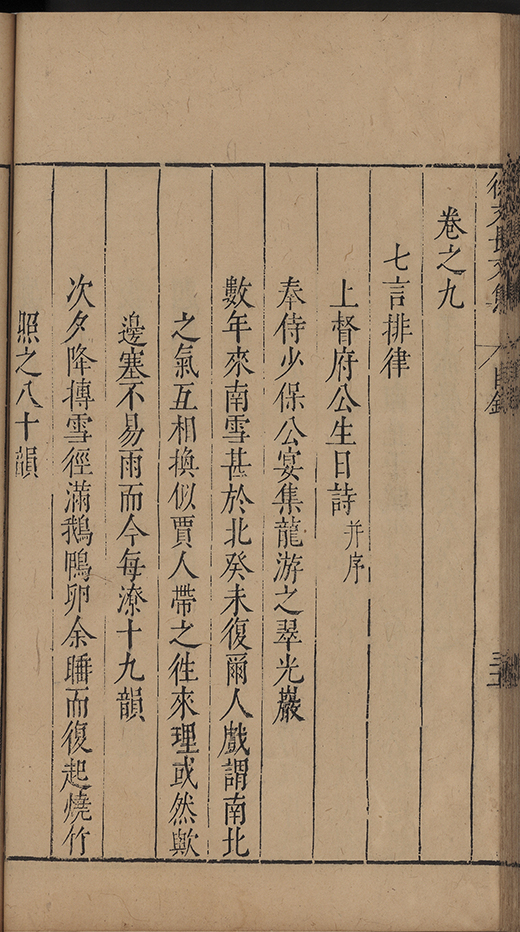 徐文長文集 目錄
卷之九
七言排律
上督府公生日詩并序
奉侍少保公宴集龍游之翠光巖
數年來南雪甚於北癸未復爾人戲謂南北
之氣互相換似賈人帶之徃來理或然歟
邊塞不易雨而今每潦十九韻
次夕降摶雪徑滿鵝鴨卵余睡而復起燒竹
照之八十韻